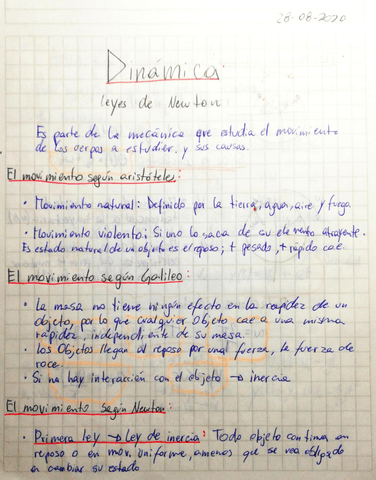 28-08-2020
Dinámica:
leyes de Newton
Es parte de la mecánica que estudia el movimiento
de los cerpos a estudier, y sus causas.
El movimiento según aristóteles:
• Movimiento natural: Definido por la tierra, agua, aire y fuego.
• Movimiento violento: Si uno lo saca de su elemento atrayente.
Es estado natural de un objeto es el reposo; + pesado, + rápido cae.
El movimiento según Galileo:
• La masa no tiene ningún efecto en la rapidez de un
objeto, por lo que cualquier Objeto cae a una misma
rapidez, independiente de su masa.
• los Objetos llegan al reposo por una fuerza, la fuerza de
roce.
• Si no hay interacción con el objeto → inercia
El movimiento según Newton:
• Primera ley → Ley de inercia: Todo objeto continua en
reposo o en mov. Uniforme, amenos que se vea obligado
en cambiar su estado